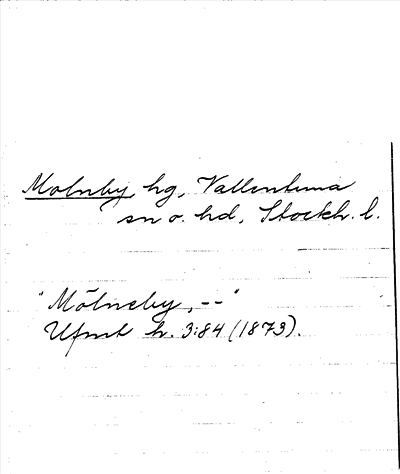 Molnby hg, Vallentuna
sn o. hd, Stockh. l.
"Mölneby, --"
Ufmt h. 3:84 (1873).